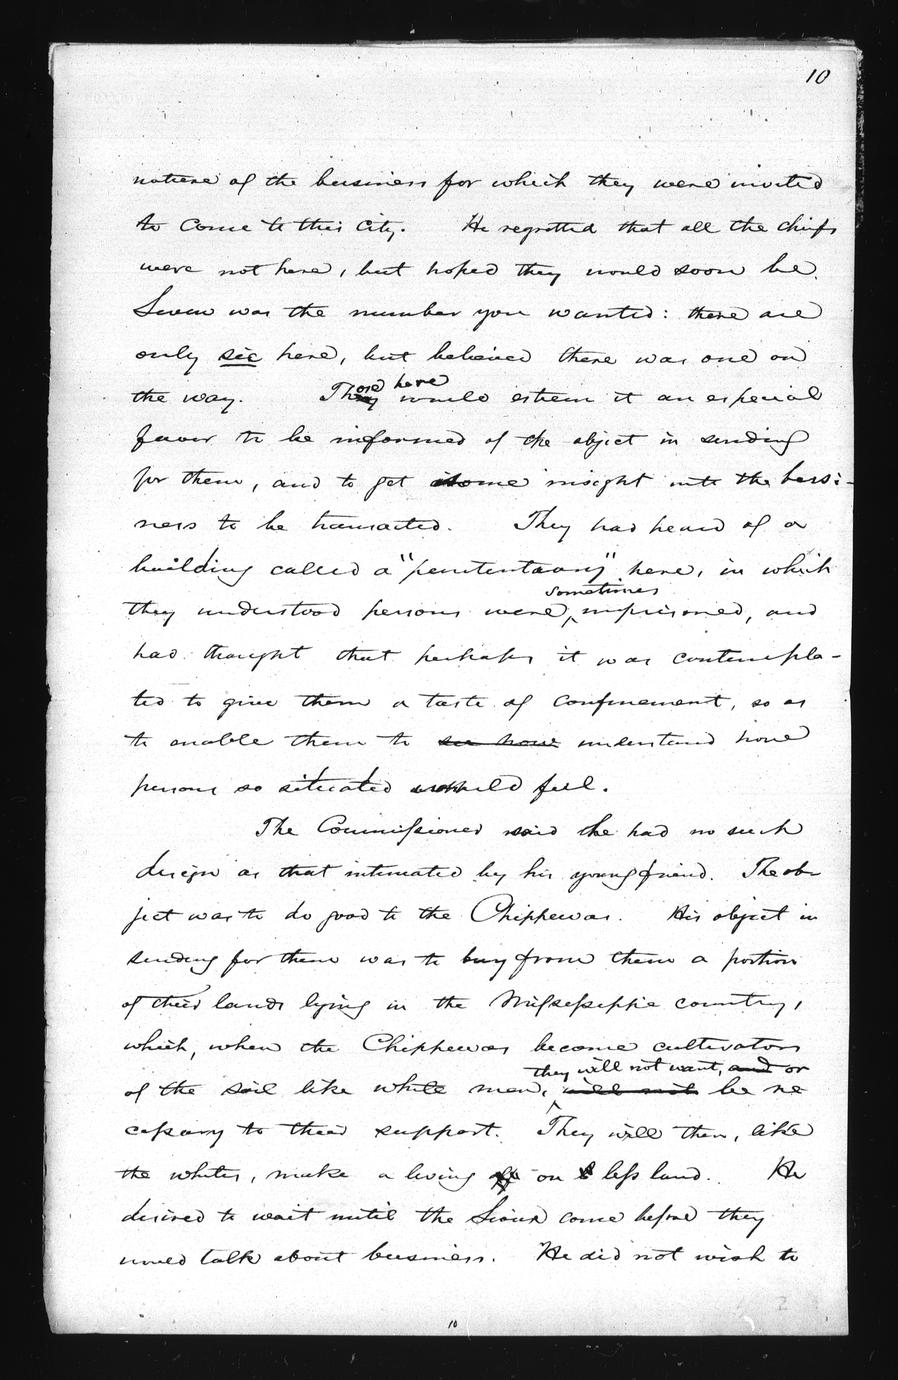 10
nature of the business for which they were invited
to come to this city. He regretted that all the chiefs
were not here, but hoped they would soon be.
Seven was the number you wanted: there are
only six here, but believed there was one on
the way. Those here would esteem it an especial
favor to be informed of the object in sending
for them, and to get some insight into the busi-
ness to be transacted. They had heard of a
building called a "penitentiary" here, in which
sometimes
they understood persons were imprisoned, and
had thought that perhaps it was contempla-
ted to give them a taste of confinement, so as
to enable them to see how understand how
persons so situated would feel.
The Commissioner said he had no such
design as that intimated by his young friend. The ob-
ject was to do good to the Chippewas. His object in
sending for them was to buy from them a portion
of their lands lying in the Mississippi country,
which, when the Chippewas become cultivators
they will not want, and or
of the soil like white men, will not be ne
cessary to their support. They will then, like
the whites, make a living off on less land. He
desired to wait until the Sioux come before they
would talk about business. He did not wish to
10